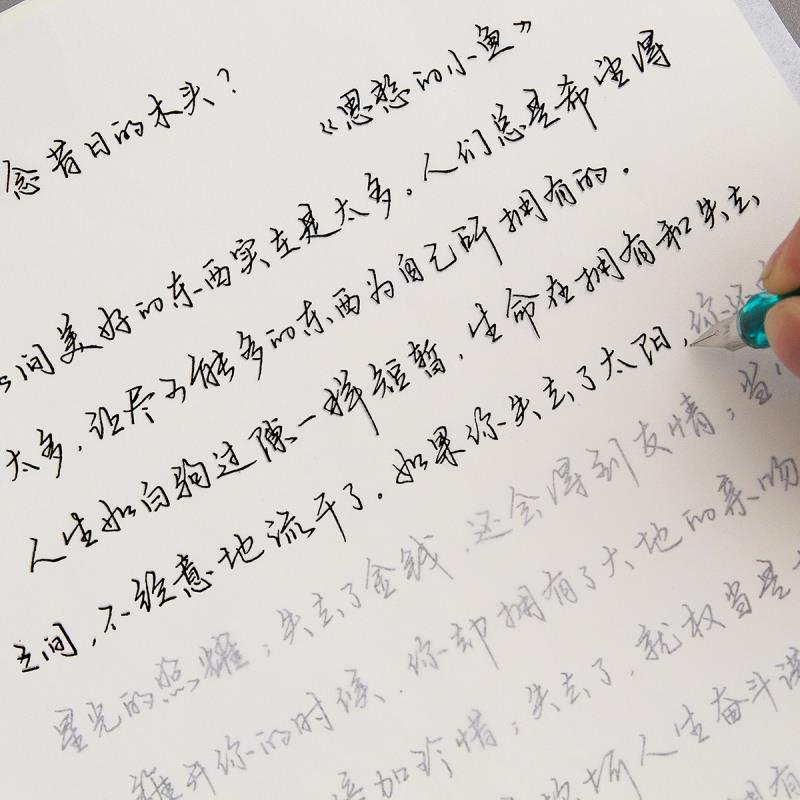 念昔日的木头?
《愚憨的小鱼》
间美好的东西实在是太多。人们总是希望得
太多,让尽可能多的东西为自己所拥有的.
人生如白驹过隙一样短暂,生命在拥有和失去
之间,不经意地流干了。如果你失去了太阳,你还
星光的照耀;失去了金钱,还会得到友情;当
离开你的时候,你却拥有了大地的亲吻
加珍惜;失去了,就权当是
人生奋斗
拥有